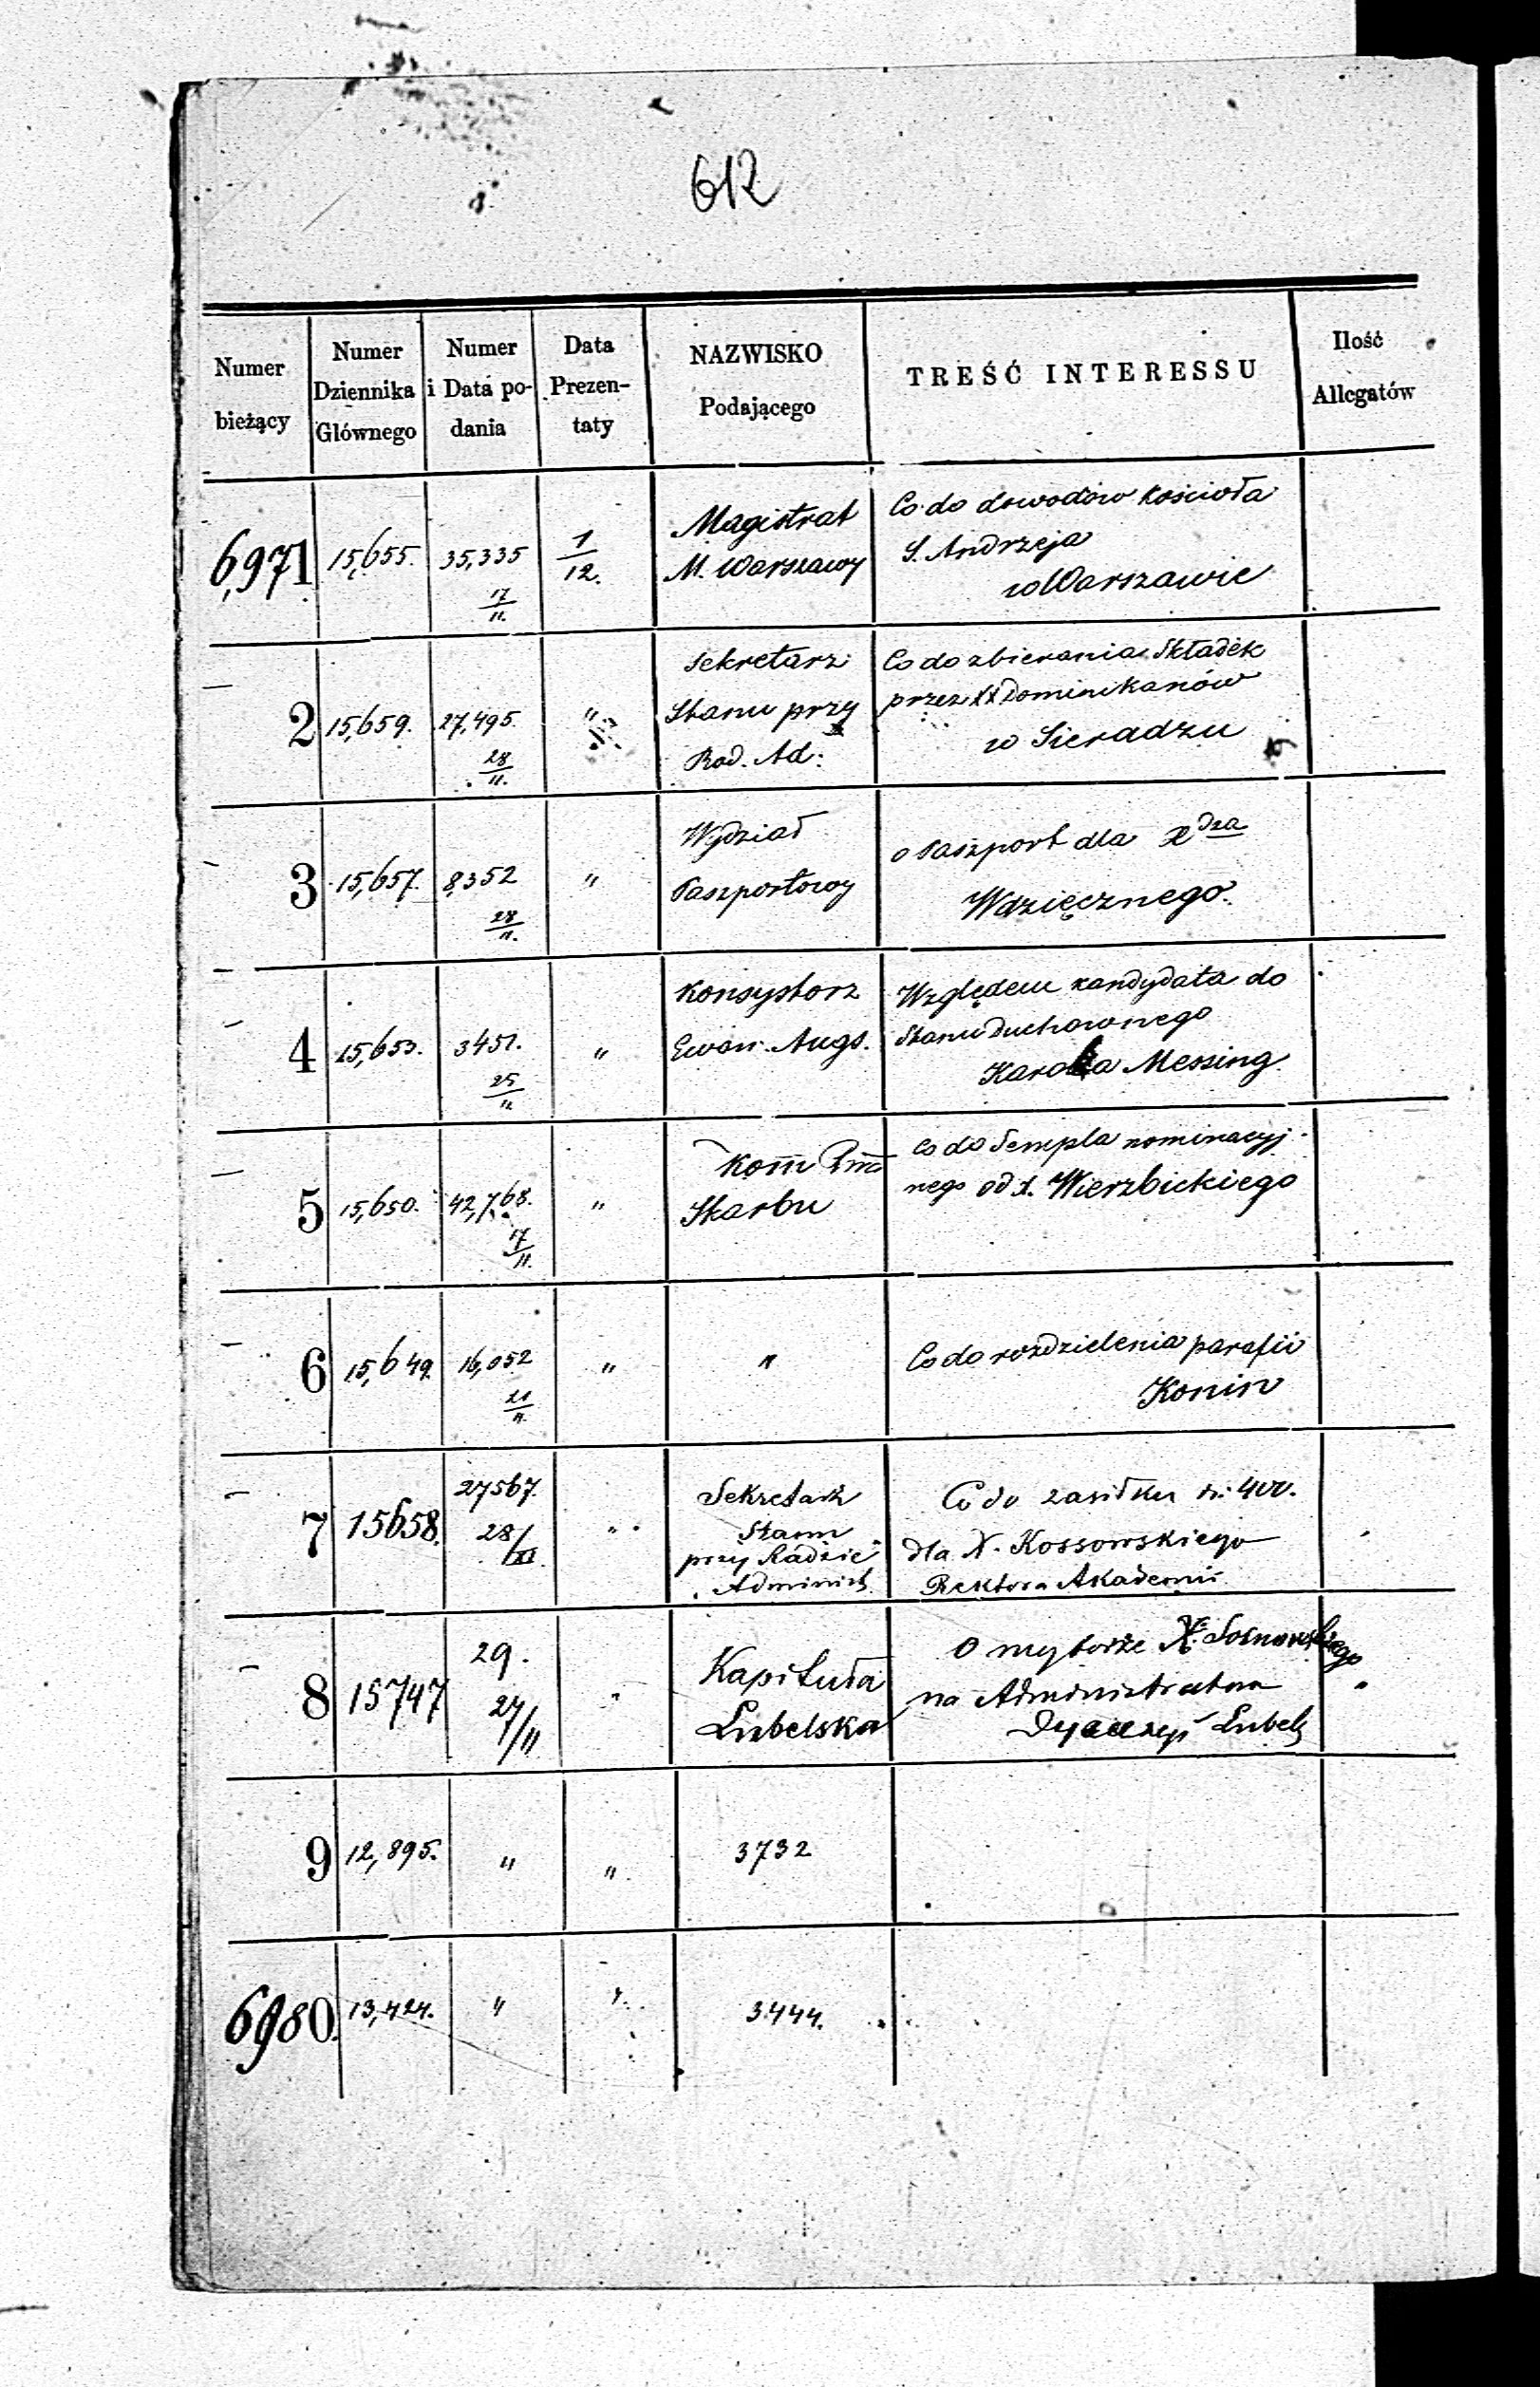 612
Numer bieżący
Numer Dziennika Głównego
Numer i Data podania
Data Prezentaty
NAZWISKO Podającego
TREŚĆ INTERESSU
Ilość Allegatów
6,971 15,655. 35,335 17/11. 1/12.
Magistrat
M. Warszawy
Co do dowodów kościoła
S. Andrzeja
w Warszawie
2 15,659. 27,495. 28/11. "
Sekretarz
Stanu przy
Rad. Ad:
Co do zbierania Składek
przez XX Dominikanów
w Sieradzu
3 15,657. 8,352 28/11. "
Wydział
Paszportowy
o Paszport dla Xdza
Wdzięcznego.
4 15,653. 3451. 25/11 "
Konsystorz
Ewan. Augs.
Względem kandydata do
Stanu Duchownego
Karola Messing
5 15,650. 42,768. 17/11. "
Kom
Skarbu
Co do Stempla nominacyj-
nego od X. Wierzbickiego
6 15,649. 16,052 21/11. " "
Co do rozdzielenia parafii
Konin
7 15658. 27567. 28/XI. "
Sekretarz
Stanu
przy Radzie
Administ.
Co do zasiłku 400.
dla X. Kossowskiego
Rektora Akademii
8 15747 29. 27/11 "
Kapituła
Lubelska
O wyborze X. Sosnowskiego
na Administratora
Dyecezyi Lubels
"
9 12,895. " " 3732
6980. 13,424. " " 3444.